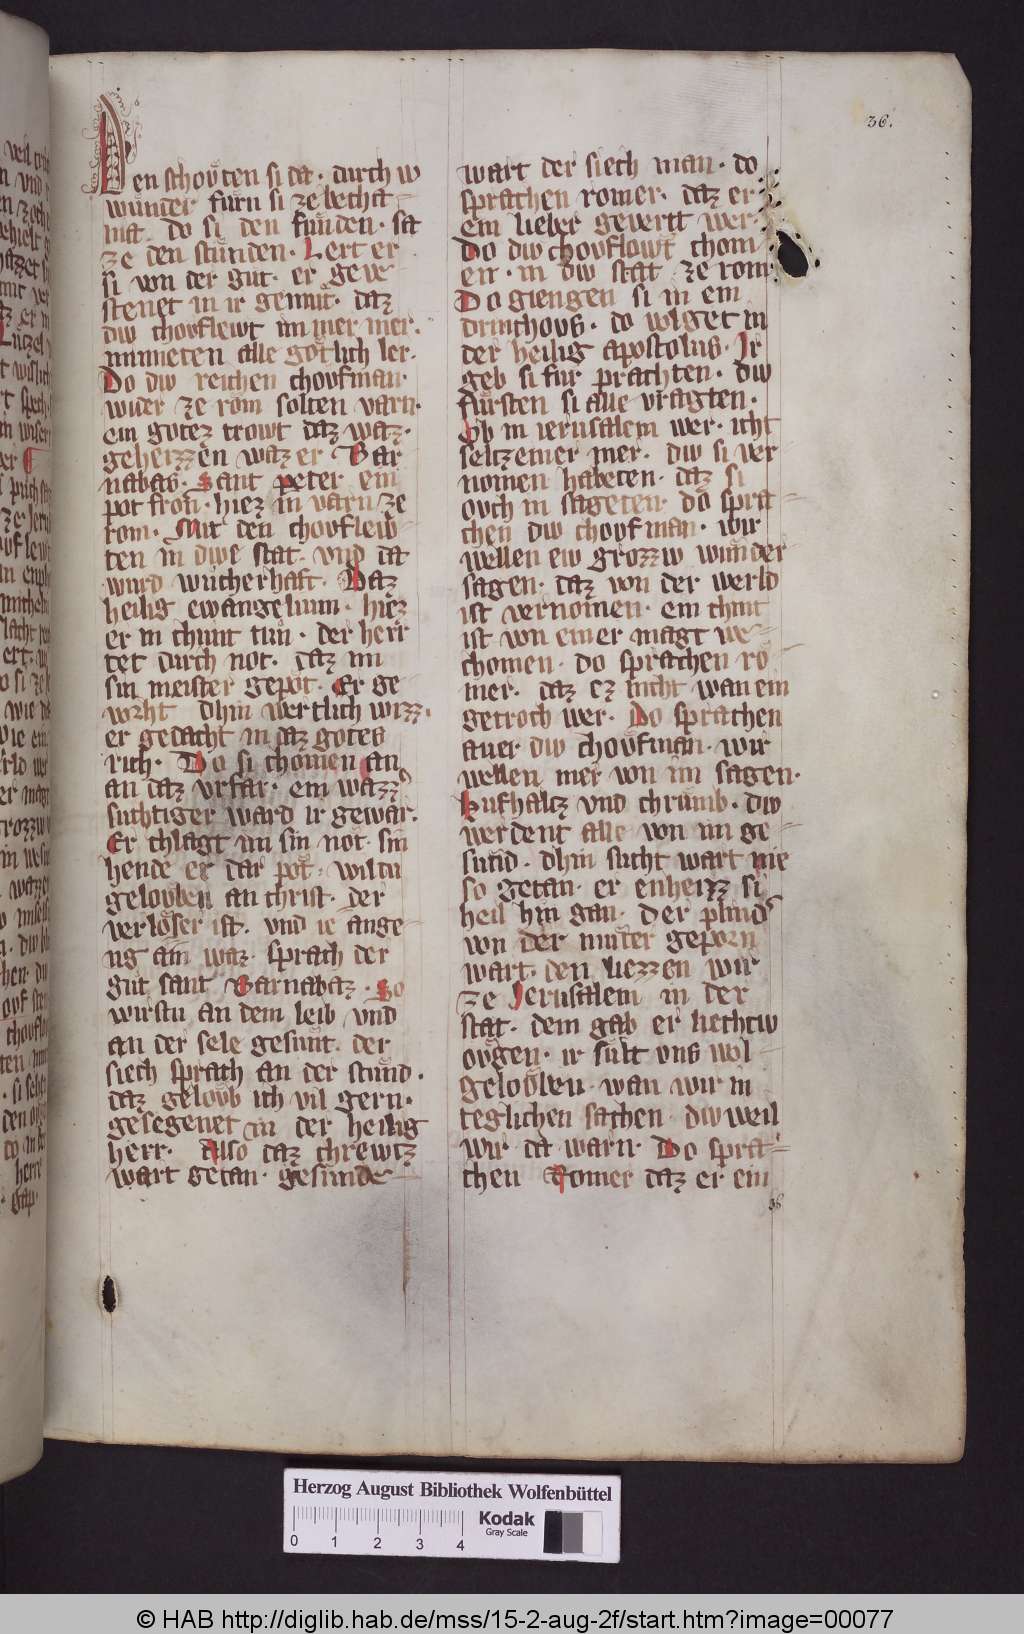 36.
Den schoͮten si da · durch w
wunder furn si ze becha
ma · do si den funden · sa
ze den stunden · Lert er
si von der gut · er geve
stenet in ir gemut · daz
diw choufleẘt im mer mer ·
minneten alle gotlich ler ·
Do diw reichen choufman ·
wider ze rom solten varn ·
ein gutez trowt daz waz ·
geheizzen waz er Bar
nabas · Sant peter ein
pot fron · hiez in varn ze
rom · Mit den choufleẘ
ten in diwe stat · vnd da
wurd wucherhaft · Daz
heilig ewangelium · hiez
er in chunt tun · der herr
tet durch not · daz im
sin meister gepot · Er ge
worht dhin wertlich wizz ·
er gedacht in daz gotes
rich · Do si chomen an
an daz vrfar · ein wazz
suchtiger ward ir gewar ·
Er chlagt im sin not · sin
hende er dar pot · wiltu
gelouben an christ · der
verloser ist · vnd ie ange
ng ain waz · sprach der
gut sant Barnabaz · So
wirstu an dem leib vnd
an der sele gesunt · der
siech sprach an der stund ·
daz geloub ich vil gern ·
gesegenet in der heilig
herr · Also daz chrewtz
wart getan · gesunde
wart der siech man · do
sprachen romer · daz er
ein lieber gevertt wer ·
Do diw choufloẘt chom
en · in diw stat ze rom
Do giengen si in ein
drinchous · do wiset in
der heilig apostolus · Ir
geb si fur prachten · diw
fursten si alle vragten ·
Ob in ierusalem wer · icht
seltzeiner mer · diw si ver
nomen habeten · daz si
ouch in sageten · do spra
chen diw choufman · wir
wellen ew grozzw wunder
sagen · daz von der werld
ist vernomen · ein chint
ist von einer magt be
chomen · do sprachen ro
mer · daz ez nicht wan ein
getroch wer · Do sprachen
auer diw choufman · wir
wellen mer von im sagen ·
Hufhaltz vnd chrumb · diw
werdent alle von im ge
sund · dhin sucht wart nie
so getan · er enheizz si
heil hin gan · Der plind
von der muter geporn
wart · den liezzen wir
ze Jerusalem in der
stat · dem gab er liechtiw
ougen · ir sult vns wol
gelouben · wan wir in
teglichen sachen · diw weil
wir da warn · Do spra
chen Romer daz er ein
36
Herzog August Bibliothek Wolfenbüttel
0 1 2 3 4
Kodak
Gray Scale
© HAB http://diglib.hab.de/mss/15-2-aug-2f/start.htm?image=00077